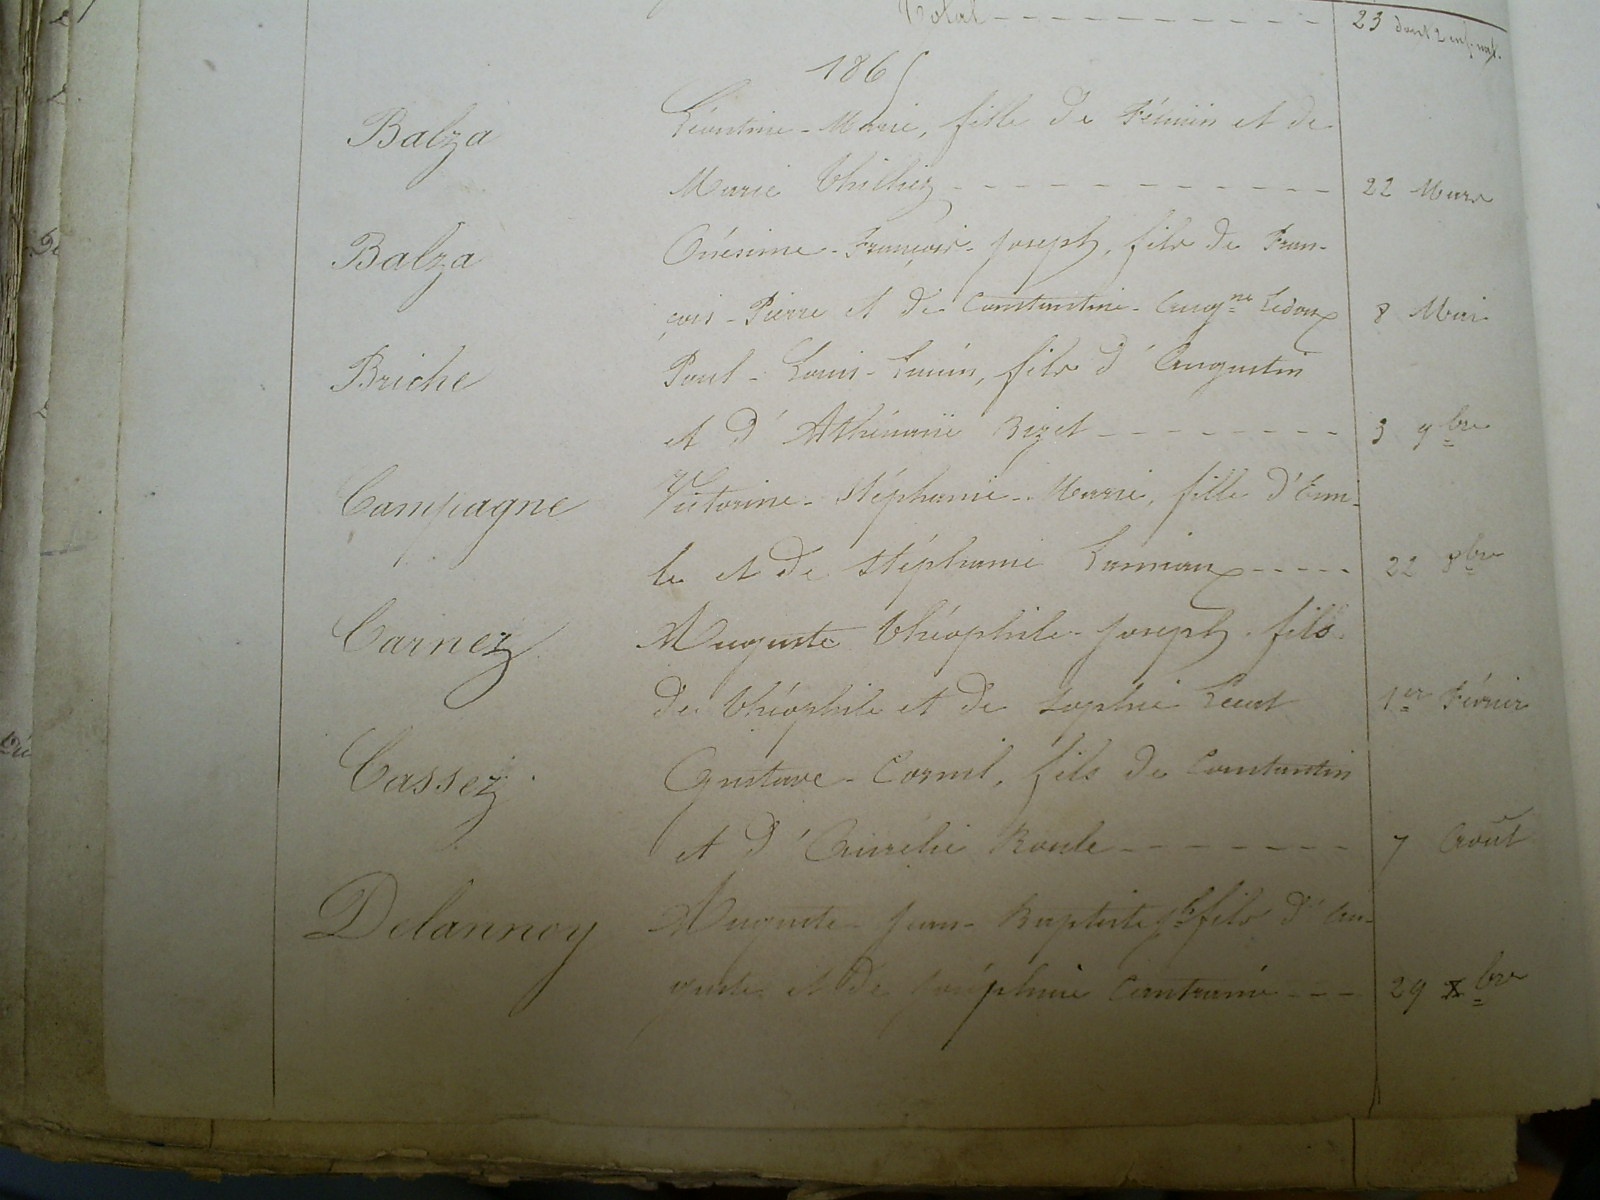 Total - - - - - - - - - - - 23 dont 2 enf. nat.
1865
Balza Léontine - Marie, fille de Firmin et de
Marie Thilliez - - - - - - - - - - - - 22 Mars
Balza Onésime - François - Joseph, fils de Fran-
çois - Pierre et de Constantine - Aug.ne Ledoux 8 Mai
Briche Paul - Louis - Lucien, fils d'Augustin
et d'Athénaïe Bizet - - - - - - - - 3 9bre
Campagne Victorine - Stéphanie - Marie, fille d'Emi-
le et de Stéphanie Lamiaux - - - - - 22 8bre
Carnez Auguste Théophile - Joseph - fils -
de Théophile et de Sophie 1er Février
Cassez Gustave - Cornil, fils de Constantin
et d'Aurélie Roule - - - - - - - - 7 Août
Delannoy Auguste - Jean - Baptiste Jh fils d'Au-
guste et de Joséphine Cantraine - - - 29 Xbre